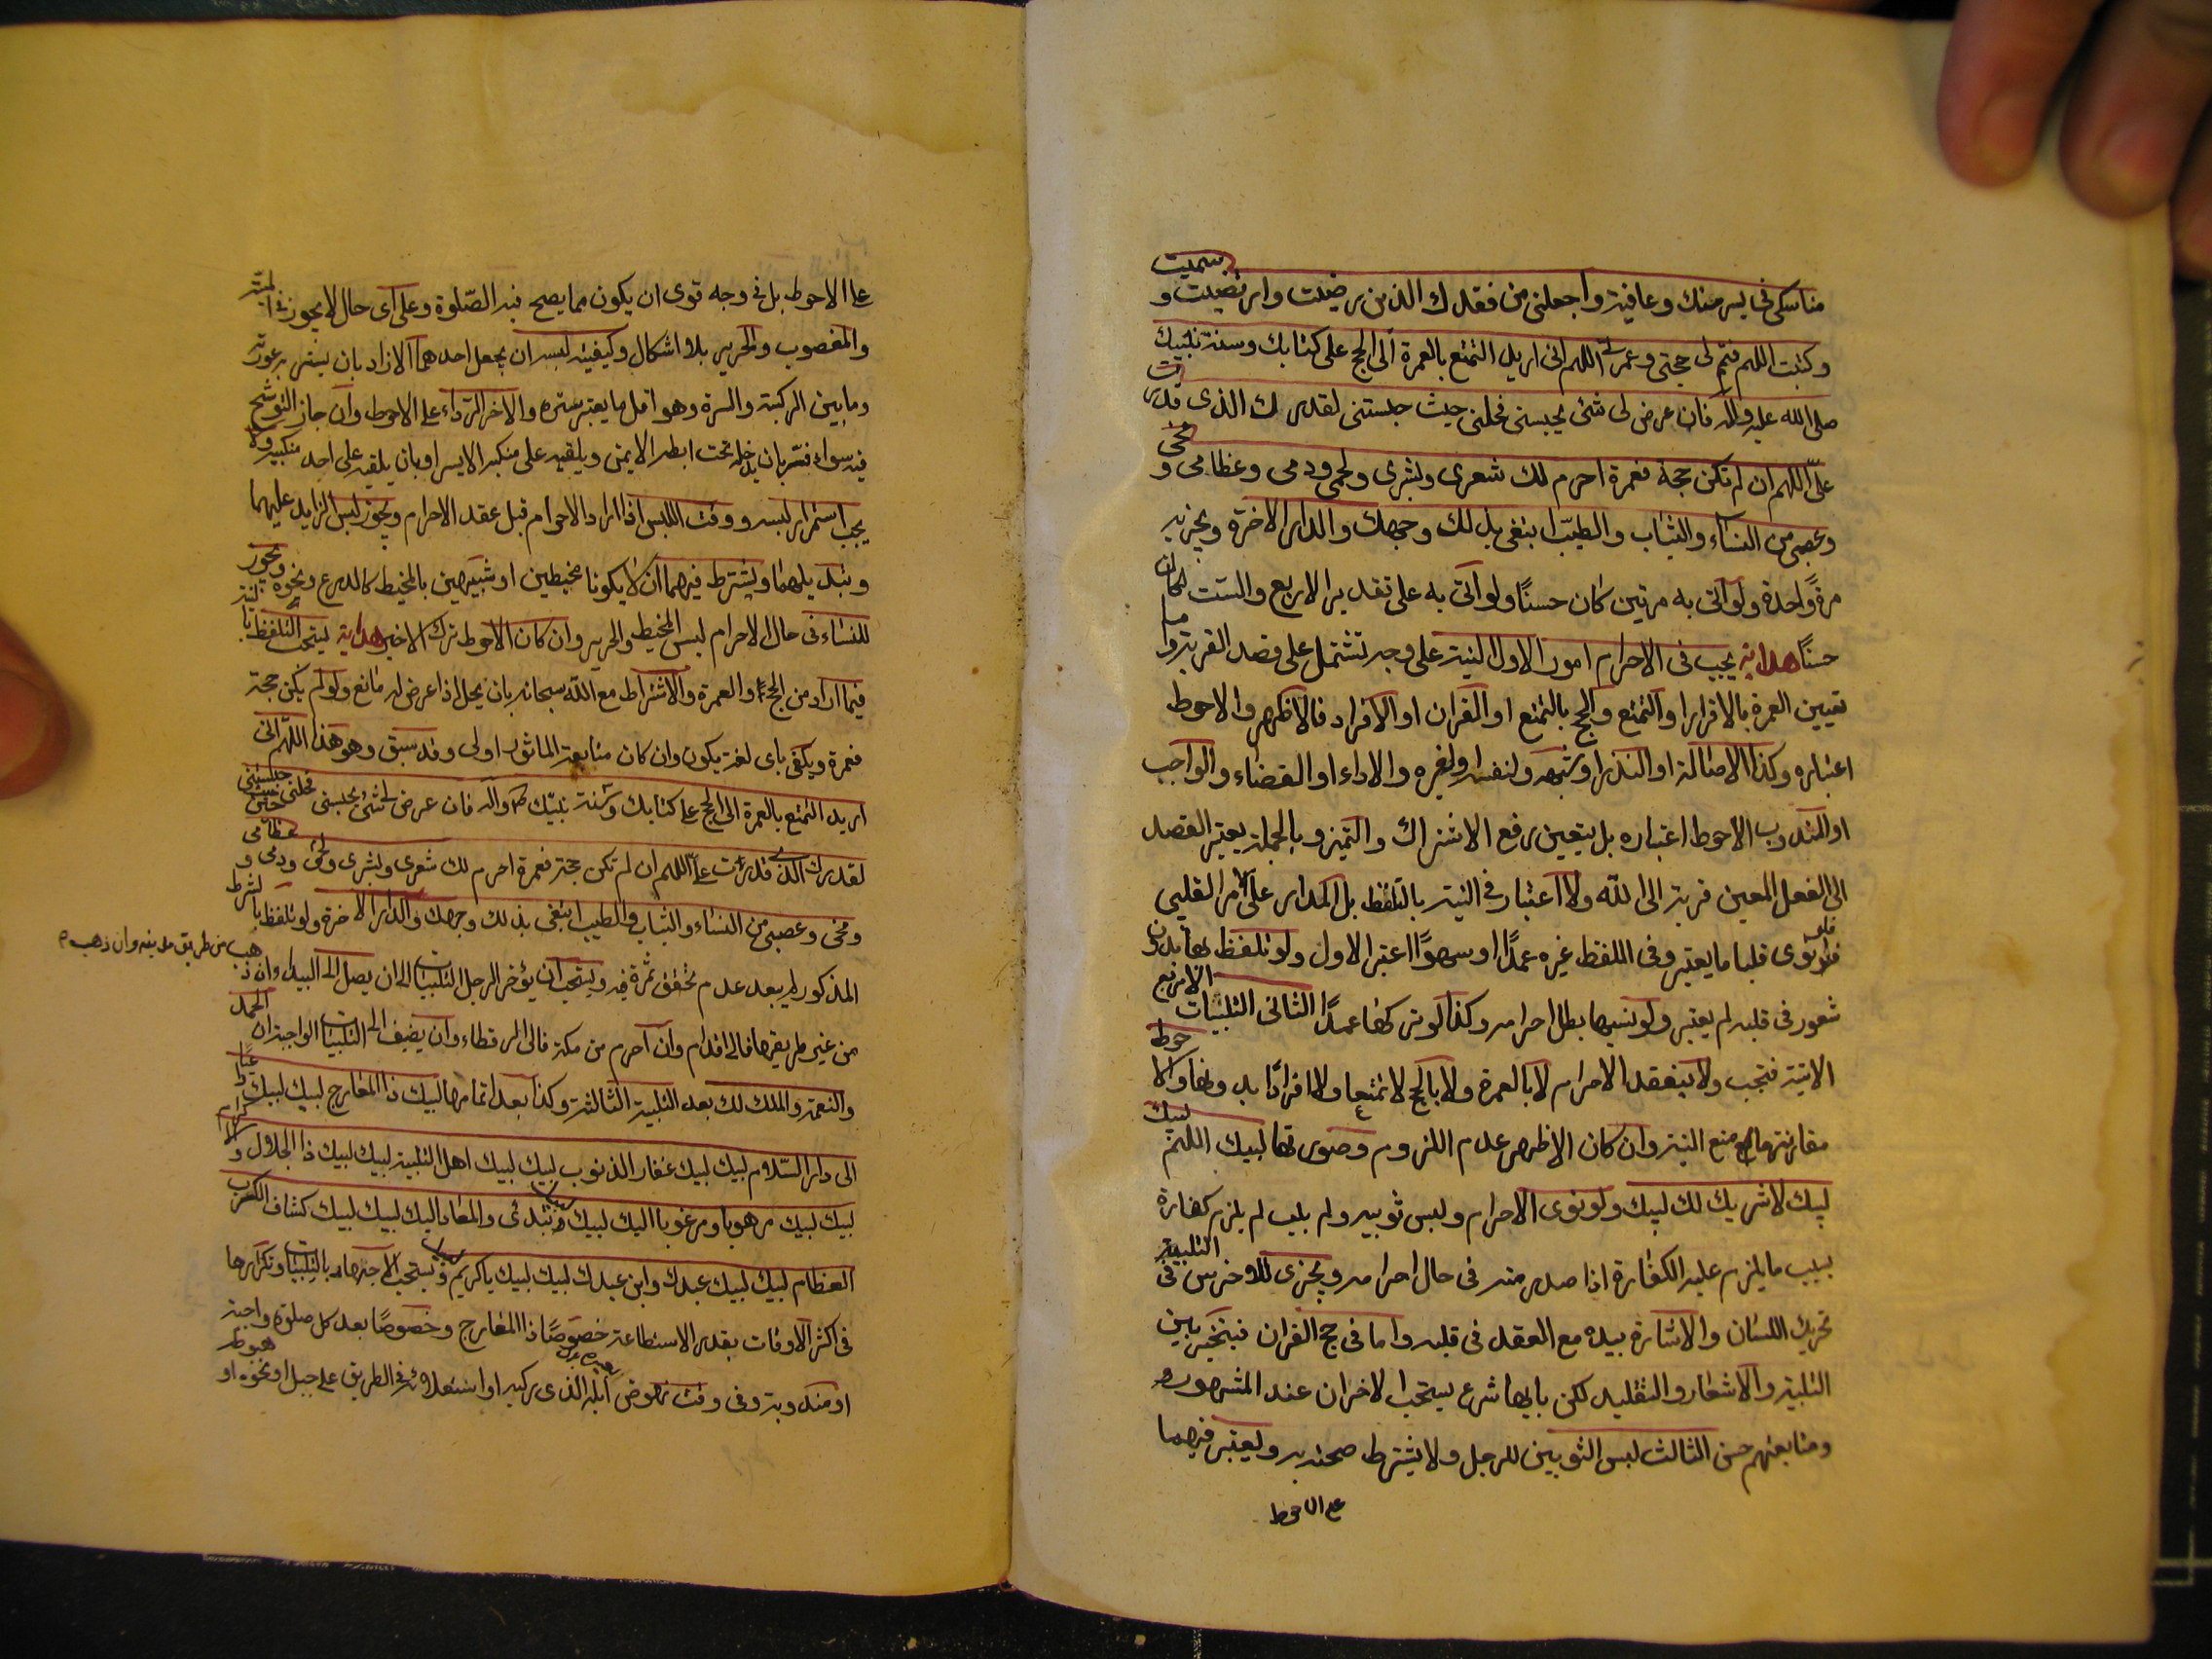 مناسكى فى يسر منك وعافية واجعلنى من فقدك الذين رضيت وارتضيت وسميت
وكتبت اللهم فتمم لى حجتى وعمرتى اللهم انى اريد التمتع بالعمرة الى الحج على كتابك وسنة نبيك
صلى الله عليه واله فان عرض لى شئ يحبسنى فحلنى حيث حبستنى لقدرك الذى قدرت
علىّ اللهم ان لم تكن حجة فعمرة احرم لك شعرى وبشرى ولحمى ودمى وعظامى و مخى
وعصبى من النساء والثياب والطيب ابتغى بذلك وجهك والدار الاخرة ويجزيه
مرةً واحدة ولو اتى به مرتين كان حسنًا ولو اتى به على تقدير الاربع والست لكان
حسنًا هداية يجب فى الاحرام امور الاول النية على وجه تشتمل على قصد القربة و
تعيين العمرة بالافراد او التمتع والحج بالتمتع او القران او الافراد فالاظهر والاحوط
اعتباره وكذا الاصالة او النذر او شبهه ولنفسه او لغيره والاداء او القضاء والواجب
او المندوب الاحوط اعتباره بل يتعين رفع الاشتراك والتميز وبالجملة يعتبر القصد
الى الفعل المعين قربة الى الله ولا اعتبار فى النية بالتلفظ بل المدار على الامر القلبى
فلو نوى قلبا ما يعتبر وفى اللفظ غيره عمدًا او سهوًا اعتبر الاول ولو تلفظ بها بدون
شعور فى قلبه لم يعتبر ولو نسيها بطل احرامه وكذا لو تركها عمدًا الثانى التلبيات الاربع
الاتية فتجب ولا ينعقد الاحرام لا بالعمرة ولا بالحج لا تمتعا ولا افرادًا بدونها والاحوط
مقارنتها مع النية وان كان الاظهر عدم اللزوم وصورتها لبيك اللهم لبيك
لبيك لا شريك لك لبيك ولو نوى الاحرام ولبس ثوبيه ولم يلب لم يلزم كفارة
بسبب ما يلزم عليه الكفارة اذا صدر منه فى حال احرامه ويجزى للاخرس فى التلبية
تحريك اللسان والاشارة بيده مع العقد فى قلبه واما فى حج القران فيتخير بين
التلبية والاشعار والتقليد لكن بايها شرع يستحب الاخران عند المشهور
ومتابعتهم حسن الثالث لبس الثوبين للرجل ولا يشترط صحته به ويعتبر فيهما
على الاحوط
على الاحوط بل فى وجه قوى ان يكون مما يصح فيه الصلوة وعلى اى حال لا يجوز فى الميتة
والمغصوب والحرير بلا اشكال وكيفية لبسه ان يجعل احدهما الازار بان يستر به عورته
وما بين الركبة والسرة وهو اقل ما يعتبر ستره والاخر الرداء على الاحوط وان جاز التوشح
فيه سواء فسّر بان يدخله تحت ابطه الايمن ويلقيه على منكبه الايسر او بان يلقيه على احد منكبيه ولا
يجب استمرار لبسه ووقت اللبس اذا اراد الاحرام قبل عقد الاحرام ويجوز لبس الزايد عليهما
وتبديلهما ويشترط فيهما ان لا يكونا مخيطين او شبيهين بالمخيط كالدرع ونحوه ويجوز
للنساء فى حال الاحرام لبس المخيط والحرير وان كان الاحوط ترك الاخير هداية يستحب التلفظ بالنية
فيما اراد من الحج والعمرة والاشتراط مع الله سبحانه بان يحل اذا عرض له مانع ولو لم يكن حجة
فعمرة ويكفى باى لغة يكون وان كان متابعة الماثور اولى وقد سبق وهو هذا اللهم انى
اريد التمتع بالعمرة الى الحج على كتابك وسنة نبيك ص واله فان عرض لى شئ يحبسنى فحلنى حيث حبستنى
لقدرك الذى قدرت علىّ اللهم ان لم تكن حجة فعمرة احرم لك شعرى وبشرى ولحمى ودمى و عظامى
ومخى وعصبى من النساء والثياب والطيب ابتغى بذلك وجهك والدار الاخرة ولو تلفظ بالشرط
المذكور لم يبعد عدم تحقق ثمرة فيه ويستحب ان يؤخر الرجل التلبيات الى ان يصل الى البيداء ان ذهب من طريق مدينه وان ذهب
من غير طريقها فالى اقدام وان احرم من مكة فالى الرقطاء وان يضيف الى التلبيات الواجبة ان الحمد
والنعمة والملك لك بعد التلبية الثالثة وكذا بعد اتمامها لبيك ذا المعارج لبيك لبيك داعيًا
الى دار السّلام لبيك لبيك غفار الذنوب لبيك لبيك اهل التلبية لبيك لبيك ذا الجلال والاكرام
لبيك لبيك مرهوبا ومرغوبا اليك لبيك لبيك تبدئ والمعاد اليك لبيك لبيك كشاف الكرب
العظام لبيك لبيك عبدك وابن عبدك لبيك لبيك يا كريم لبيك ويستحب الاجهار بالتلبيات وتكرارها
فى اكثر الاوقات بقدر الاستطاعة خصوصًا ذا المعارج وخصوصًا بعد كل صلوة واجبة
او مندوبة وفى وقت نهوض ابله الذى يركبه او استعلائه فى الطريق على جبل او نحوه او هبوط